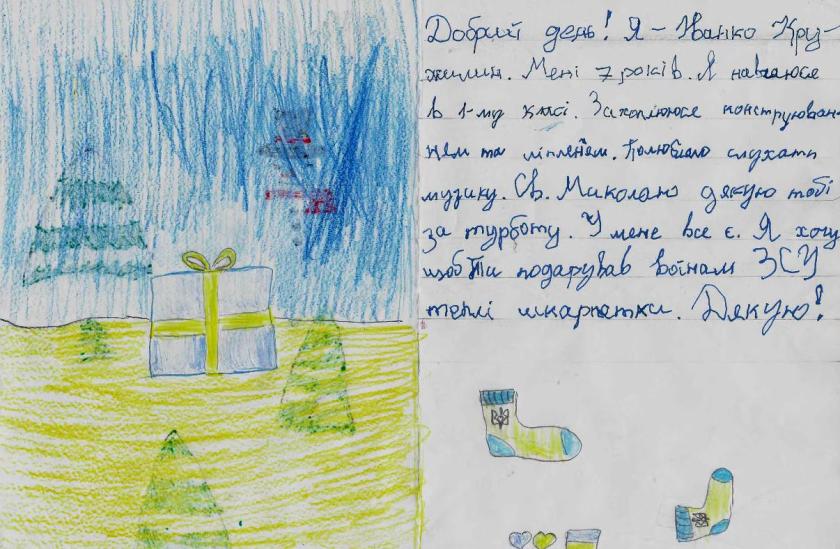 Добрий день! Я - Іванко Кру-
жилин. Мені 7 років. Я навчаюся
в 1-му класі. Захоплююся конструюван-
ням та ліпленєм. Полюбляю слухати
музику. Св. Миколаю дякую тобі
за турботу. У мене все є. Я хочу
щоб Ти подарував воїнам ЗСУ
теплі шкарпетки. Дякую!